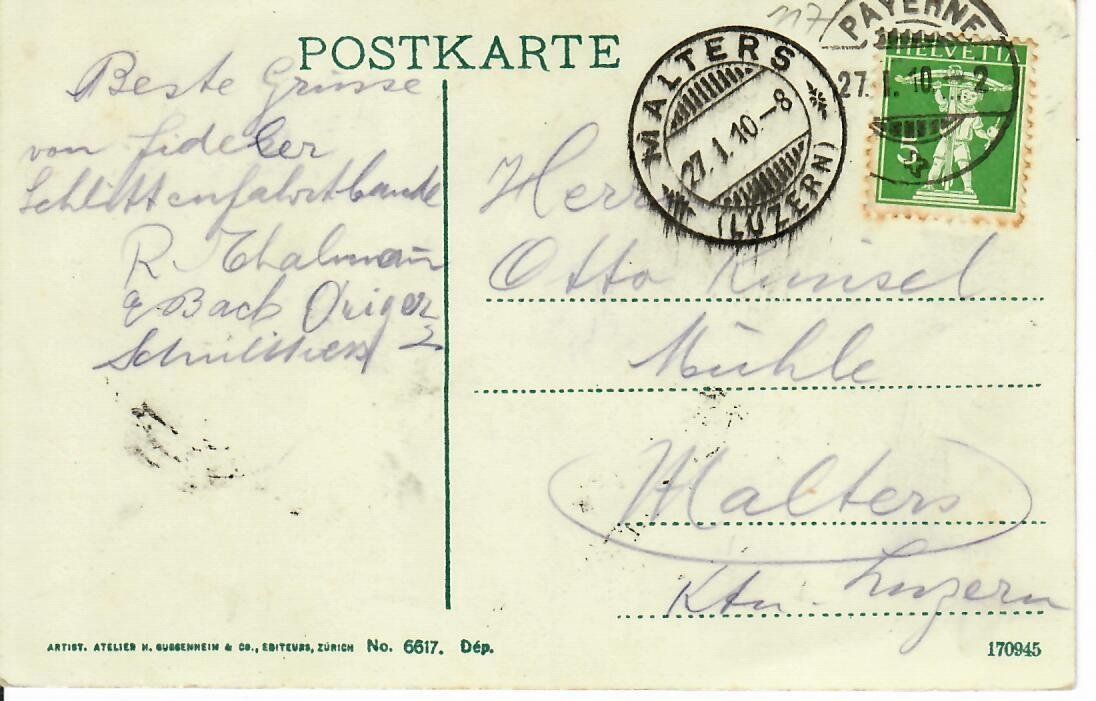 POSTKARTE
Beste Grüsse
von fideler
Schlittenfahrtbande
R. Thalmann
E Bach Origer
Schulthess
117
MALTERS
27.1.10.-8
(LUZERN)
PAYERNE
27.I.10.-2
HELVETIA
5
Herr
Otto Künsel
Mühle
Malters
Ktn. Luzern
ARTIST. ATELIER H. GUGGENHEIM & CO., EDITEURS, ZÜRICH No. 6617. Dép.
170945